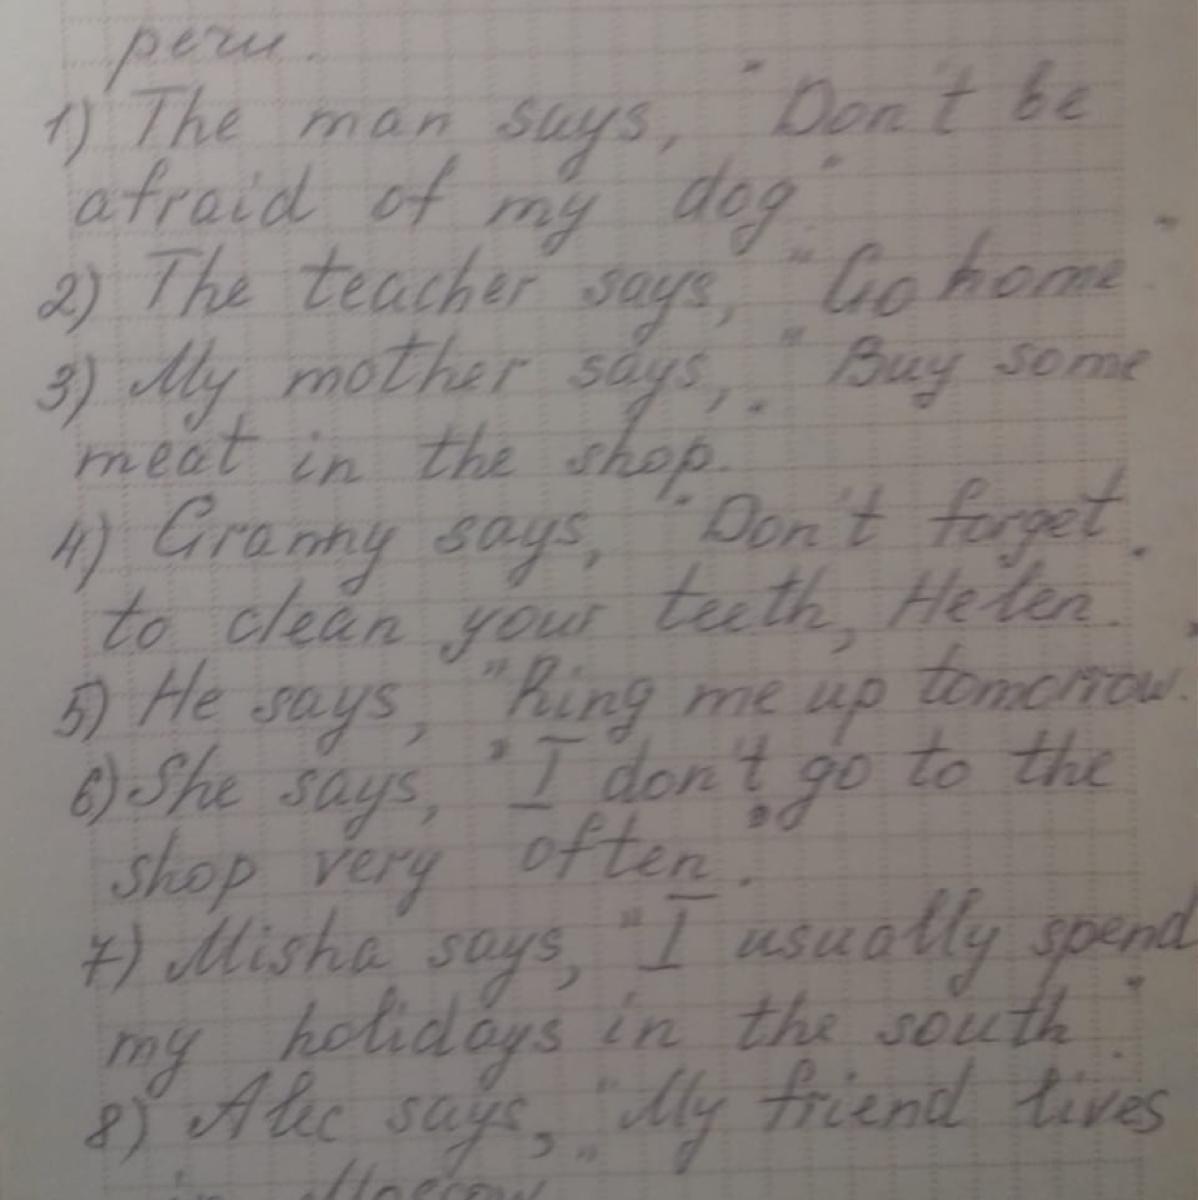 речи.
1) The man says, "Don't be
afraid of my dog."
2) The teacher says, "Go home."
3) My mother says, "Buy some
meat in the shop."
4) Granny says, "Don't forget
to clean your teeth, Helen."
5) He says, "Ring me up tomorrow."
6) She says, "I don't go to the
shop very often."
7) Misha says, "I usually spend
my holidays in the south."
8) Alec says, "My friend lives
in Moscow